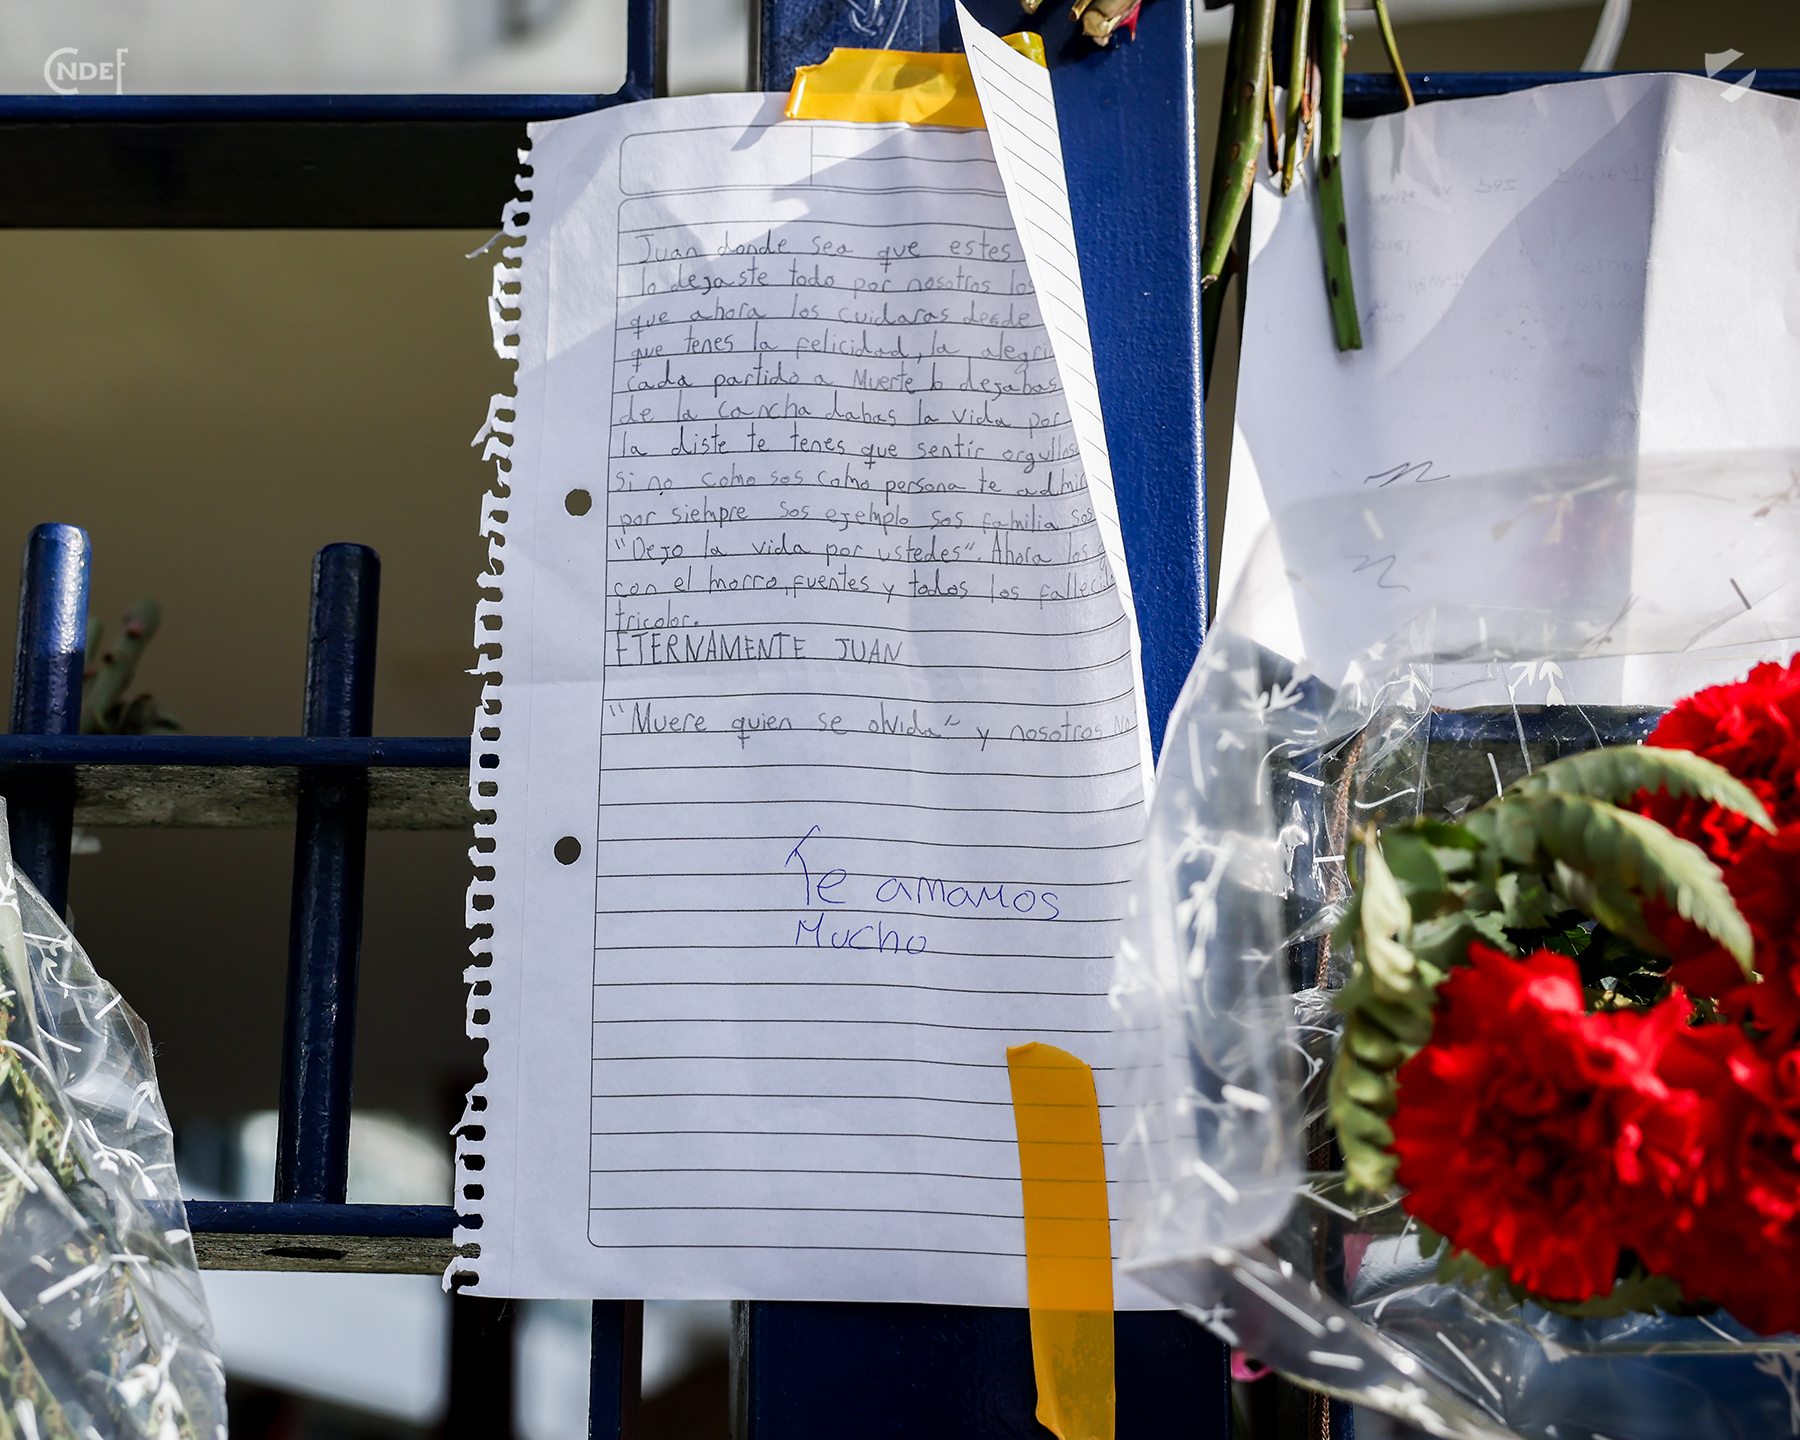 CNDEF
Juan donde sea que estes
lo dejaste todo por nosotros los
que ahora los cuidaras desde
que tenes la felicidad, la alegri
cada partido a Muerte lo dejabas
de la cancha dabas la vida por
la diste te tenes que sentir orgullos
si no como sos como persona te admir
por siempre sos ejemplo sos familia sos
"Dejo la vida por ustedes". Ahora los
con el morro, fuentes y todos los falleci
tricolor.
ETERNAMENTE JUAN
"Muere quien se olvida" y nosotros No
Te amamos
Mucho